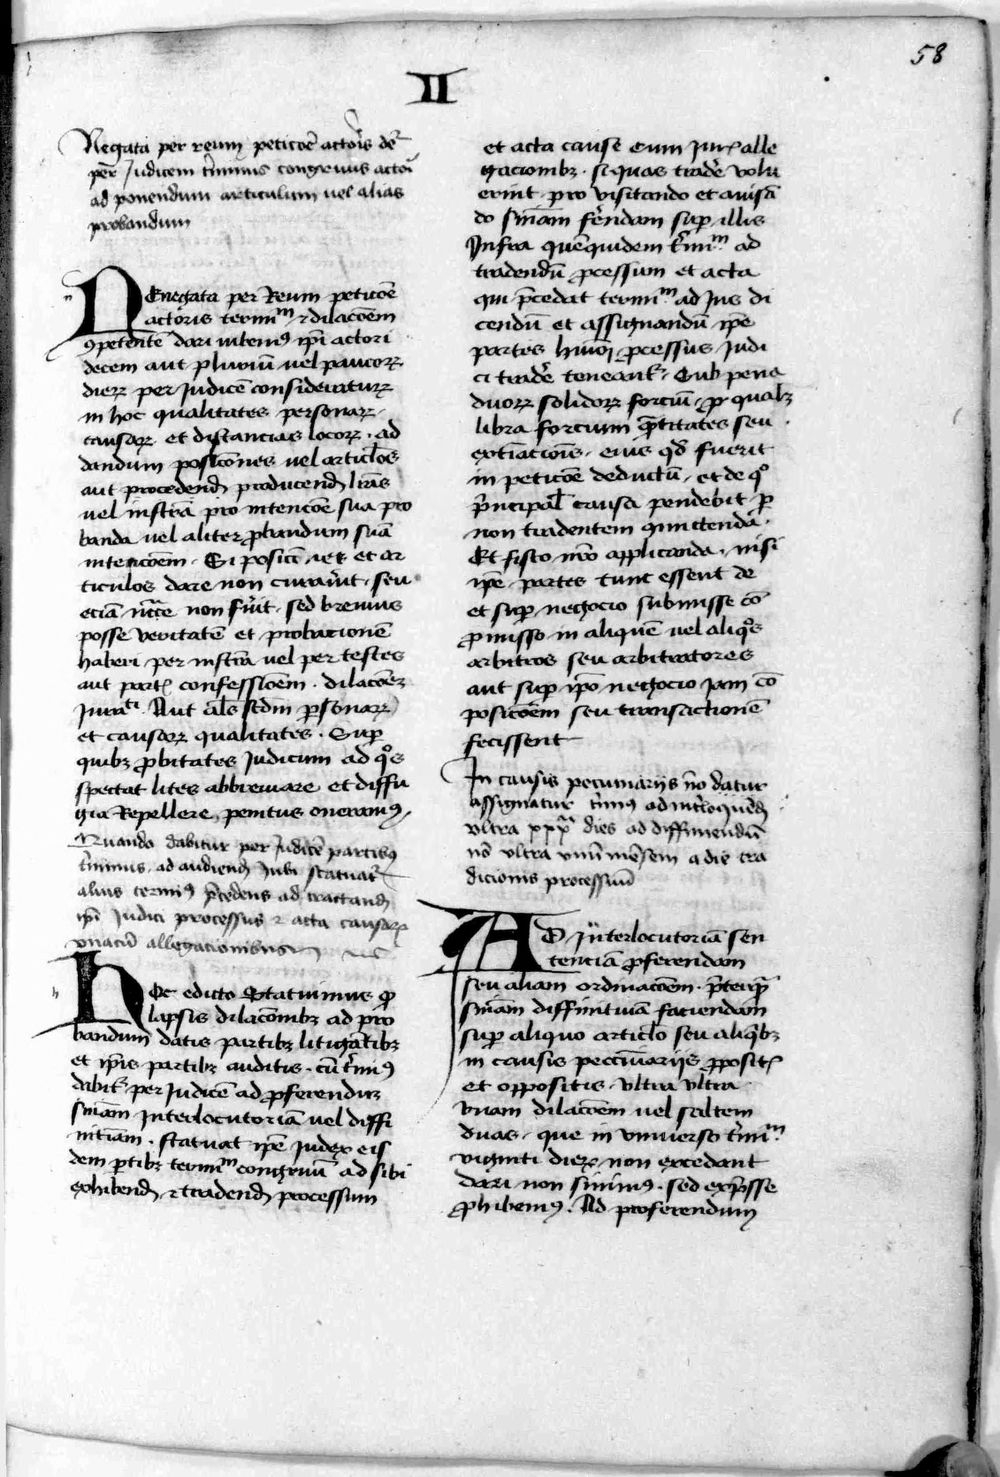 58
II
Negata per reum peticōe actoris det᷑
per Judicem t̄minus congruus actoī
ad ponendum articulum uel alias
probandum
n
DEnegata per Reum peticōe
actoris termiᵐ ⁊ dilacōem
ꝯpetentē dari iubemꝰ ip̄i actori
decem aut pluriū uel paucoꝝ
dieꝝ per Judicē considerat
in hoc qualitates personaꝝ
causaꝝ et distancias locoꝝ . ad
dandum posicōnes uel articl̄os
aut procedend producend lr̄as
uel instr̄a pro intencōe sua pro
banda uel aliter ꝓbandum suā
intencōem . Si posicōes et ar
ticulos dare non curauīt . seu
eciā necc̄e non fūit . sed breuius
posse veritatē et probacionē
haberi per instr̄a uel per testes
aut part confessioēm . dilacōeꝫ
Jurati . Aut al̄s scdm ꝑsonaꝝ
et causaꝝ qualitates . Suꝑ
quibꝫ ꝓbitates Judicum ad qͦs
spectat lites abbreuiare et diffu
gia Repellere penitus oneramꝰ
Quando dabitur per Judicē partibꝰ
t̄minus ad audiend Jubi statuat᷑
alius termiꝰ p̄cedens ad tractand
ip̄i Judici processus ⁊ acta causaꝝ
vnacū allegacionibus
h
HOc edicto Statuimus ꝙ
lapsis dilacōnibꝫ ad pro
bandum datis partibꝫ litigātibꝫ
et ip̄is partibꝫ auditis . cū t̄miꝰ
dabit᷑ per Judicē ad ꝓferendaꝫ
sniam Interlocutoriā uel diffi
nitiuam . statuat ip̄e Judex eis
dem ꝑtibꝫ termiᵐ congruū ad sibi
exhibend ⁊ tradend processum
et acta cause cum Jur alle
gacionibꝫ . si quas tradē volu
erint pro visitando et auisā
do sniam ferendam suꝑ illis
Infra quēquidem t̄miᵐ ad
tradendū ꝓcessum et acta
qui p̄cedat termiᵐ ad Jus di
cendū et assignandū ip̄e
partes huiꝰ ꝓcessus Judi
ci tradē teneant᷑ . Sub pena
duoꝝ solidoꝝ forciū . ꝑ qualꝫ
libra forcium q̄ntitates seu
extiacionis . eius qd̄ fuerit
in peticōe deductū . et de qͦ
p̄ncipal causa pendebit . ꝑ
non tradentem ꝯmictenda .
Et fisco nr̄o applicanda . nisi
ip̄e partes tunc essent de
et suꝑ negocio submisse cō
ꝓmisso in aliquē uel aliqͦs
arbitros seu arbitratores
aut suꝑ ip̄o negocio iam cō
posicōem seu transactionē
fecissent
In causis pecuniarijs nō datur
assignatur t̄miꝰ ad int̄loquēd
vltra xxᵗⁱ dies ad diffiniendū
nō vltra vnū mēsem a die tra
dicionis processuū
AD Interlocutoriā sen
tenciā ꝓferendam
seu aliam ordinacōem . p̄terq̄
sniam diffinitiuā faciendam
suꝑ aliquo articl̄o seu aliqibꝫ
in causis pecuniarijs ꝓposit
et oppositis . vltra vltra
vnam dilacōem uel saltem
duas . que in vniuerso t̄miᵐ
viginti dieꝝ non excedant
dari non sinimꝰ . sed exp̄sse
ꝓhibemꝰ . Ad proferendum